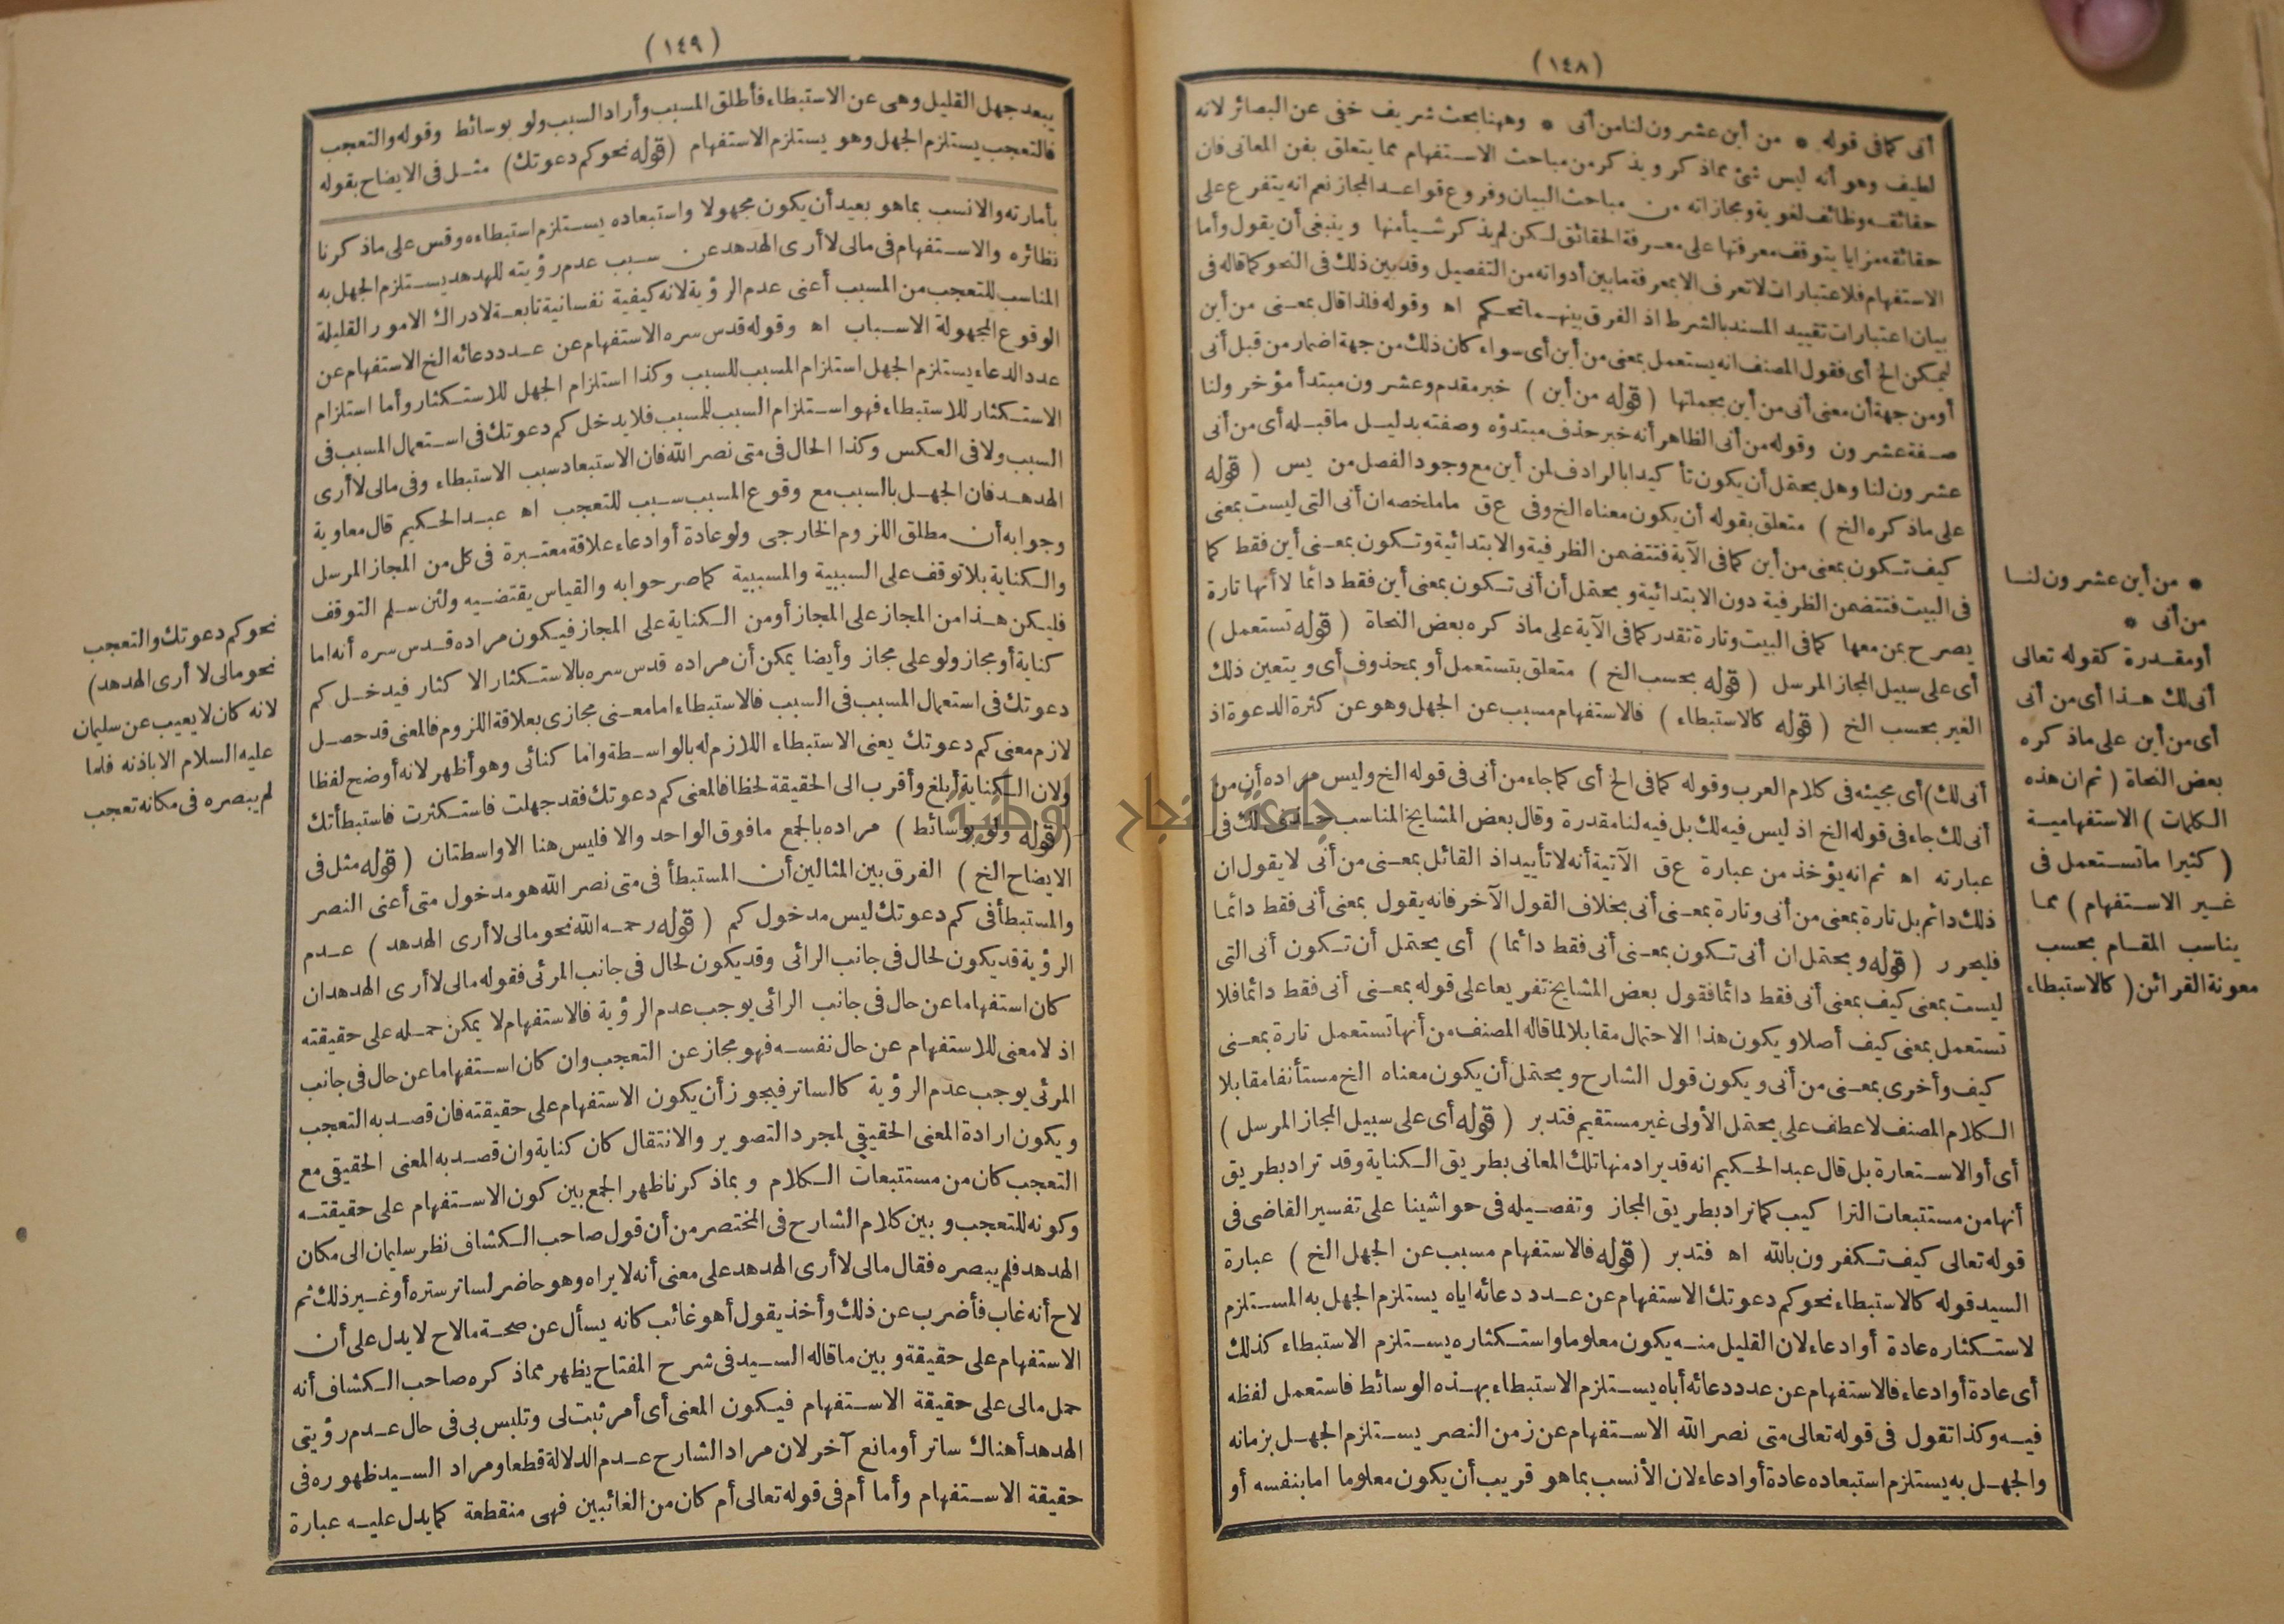 (١٤٨)
أنى كما فى قوله * من أين عشرون لنا من أنى * وههنا بحث شريف خفى عن البصائر لانه
لطيف وهو أنه ليس شئ مما ذكر ويذكر من مباحث الاستفهام مما يتعلق بفن المعانى فان
حقائقه وظائف لغوية ومجازاته من مباحث البيان وفروع قواعد المجاز نعم انه يتفرع على
حقائقه مزايا يتوقف معرفتها على معرفة الحقائق لكن لم يذكر شيأ منها وينبغى أن يقول وأما
الاستفهام فلاعتبارات لا تعرف الا بمعرفة ما بين أدواته من التفصيل وقد بين ذلك فى النحو كما قاله فى
بيان اعتبارات تقييد المسند بالشرط اذ الفرق بينهما تحكم اه وقوله فلذا قال بمعنى من أين
ليمكن الخ أى فقول المصنف انه يستعمل بمعنى من أين أى سواء كان ذلك من جهة اضمار من قبل أنى
أو من جهة أن معنى أنى من أين بجملتها (قوله من أين) خبر مقدم وعشرون مبتدأ مؤخر ولنا
صفة عشرون وقوله من أنى الظاهر أنه خبر حذف مبتدؤه وصفته بدليل ما قبله أى من أنى
عشرون لنا وهل يحتمل أن يكون تأكيدا بالرادف لمن أين مع وجود الفصل من يس (قوله
على ماذكره الخ) متعلق بقوله أن يكون معناه الخ وفى ع ق ما ملخصه ان أنى التى ليست بمعنى
كيف تكون بمعنى من أين كما فى الآية فتتضمن الظرفية والابتدائية وتكون بمعنى أين فقط كما
فى البيت فتتضمن الظرفية دون الابتدائية ويحتمل أن أنى تكون بمعنى أين فقط دائما لا أنها تارة
يصرح بمن معها كما فى البيت وتارة تقدر كما فى الآية على ماذكره بعض النحاة (قوله تستعمل)
أى على سبيل المجاز المرسل (قوله بحسب الخ) متعلق بتستعمل أو بمحذوف أى ويتعين ذلك
الغير بحسب الخ (قوله كالاستبطاء) فالاستفهام مسبب عن الجهل وهو عن كثرة الدعوة اذ
أنى لك) أى مجيئه فى كلام العرب وقوله كما فى الخ أى كما جاء من أنى فى قوله الخ وليس مراده أن من
أنى لك جاء فى قوله الخ اذ ليس فيه لك بل فيه لنا مقدرة وقال بعض المشايخ المناسب حذف لك فى
عبارته اه ثم انه يؤخذ من عبارة ع ق الآتية أنه لا تأييد اذ القائل بمعنى من أنى لا يقول ان
ذلك دائم بل تارة بمعنى من أنى وتارة بمعنى أنى بخلاف القول الآخر فانه يقول بمعنى أنى فقط دائما
فليحرر (قوله ويحتمل ان أنى تكون بمعنى أنى فقط دائما) أى يحتمل أن تكون أنى التى
ليست بمعنى كيف بمعنى أنى فقط دائما فقول بعض المشايخ تفريعا على قوله بمعنى أنى فقط دائما فلا
تستعمل بمعنى كيف أصلا ويكون هذا الاحتمال مقابلا لما قاله المصنف من أنها تستعمل تارة بمعنى
كيف وأخرى بمعنى من أنى ويكون قول الشارح ويحتمل أن يكون معناه الخ مستأنفا مقابلا
الكلام المصنف لا عطف على يحتمل الأولى غير مستقيم فتدبر (قوله أى على سبيل المجاز المرسل)
أى أو الاستعارة بل قال عبد الحكيم انه قد يراد منها تلك المعانى بطريق الكناية وقد تراد بطريق
أنها من مستتبعات التراكيب كما تراد بطريق المجاز وتفصيله فى حواشينا على تفسير القاضى فى
قوله تعالى كيف تكفرون بالله اه فتدبر (قوله فالاستفهام مسبب عن الجهل الخ) عبارة
السيد قوله كالاستبطاء نحو كم دعوتك الاستفهام عن عدد دعائه اياه يستلزم الجهل به المستلزم
لاستكثاره عادة أو ادعاء لان القليل منه يكون معلوما واستكثاره يستلزم الاستبطاء كذلك
أى عادة أو ادعاء فالاستفهام عن عدد دعائه أياه يستلزم الاستبطاء بهذه الوسائط فاستعمل لفظه
فيه وكذا تقول فى قوله تعالى متى نصر الله الاستفهام عن زمن النصر يستلزم الجهل بزمانه
والجهل به يستلزم استبعاده عادة أو ادعاء لان الأنسب بما هو قريب أن يكون معلوما اما بنفسه أو
* من أين عشرون لنا
من أنى *
أو مقدرة كقوله تعالى
أنى لك هذا أى من أنى
أى من أين على ماذكره
بعض النحاة (ثم ان هذه
الكلمات) الاستفهامية
(كثيرا ما تستعمل فى
غير الاستفهام) مما
يناسب المقام بحسب
معونة القرائن (كالاستبطاء
(١٤٩)
يبعد جهل القليل وهى عن الاستبطاء فأطلق المسبب وأراد السبب ولو بوسائط وقوله والتعجب
فالتعجب يستلزم الجهل وهو يستلزم الاستفهام (قوله نحو كم دعوتك) مثل فى الايضاح بقوله
بأمارته والانسب بما هو بعيد أن يكون مجهولا واستبعاده يستلزم استبطاءه وقس على ماذكرنا
نظائره والاستفهام فى مالى لا أرى الهدهد عن سبب عدم رؤيته للهدهد يستلزم الجهل به
المناسب للتعجب من المسبب أعنى عدم الرؤية لانه كيفية نفسانية تابعة لادراك الامور القليلة
الوقوع المجهولة الاسباب اه وقوله قدس سره الاستفهام عن عدد دعائه الخ الاستفهام عن
عدد الدعاء يستلزم الجهل استلزام المسبب للسبب وكذا استلزام الجهل للاستكثار وأما استلزام
الاستكثار للاستبطاء فهو استلزام السبب للمسبب فلا يدخل كم دعوتك فى استعمال المسبب فى
السبب ولا فى العكس وكذا الحال فى متى نصر الله فان الاستبعاد سبب الاستبطاء وفى مالى لا أرى
الهدهد فان الجهل بالسبب مع وقوع المسبب سبب للتعجب اه عبد الحكيم قال معاوية
وجوابه أن مطلق اللزوم الخارجى ولو عادة أو ادعاء علاقة معتبرة فى كل من المجاز المرسل
والكناية بلا توقف على السببية والمسببية كما صرحوا به والقياس يقتضيه ولئن سلم التوقف
فليكن هذا من المجاز على المجاز أو من الكناية على المجاز فيكون مراده قدس سره أنه اما
كناية أو مجاز ولو على مجاز وأيضا يمكن أن مراده قدس سره بالاستكثار الاكثار فيدخل كم
دعوتك فى استعمال المسبب فى السبب فالاستبطاء اما معنى مجازى بعلاقة اللزوم فالمعنى قد حصل
لازم معنى كم دعوتك يعنى الاستبطاء اللازم له بالواسطة واما كنائى وهو أظهر لانه أوضح لفظا
ولان الكناية أبلغ وأقرب الى الحقيقة لحظا فالمعنى كم دعوتك فقد جهلت فاستكثرت فاستبطأتك
(قوله ولو بوسائط) مراده بالجمع ما فوق الواحد والا فليس هنا الا واسطتان (قوله مثل فى
الايضاح الخ) الفرق بين المثالين أن المستبطأ فى متى نصر الله هو مدخول متى أعنى النصر
والمستبطأ فى كم دعوتك ليس مدخول كم (قوله رحمه الله نحو مالى لا أرى الهدهد) عدم
الرؤية قد يكون لحال فى جانب الرائى وقد يكون لحال فى جانب المرئى فقوله مالى لا أرى الهدهد ان
كان استفهاما عن حال فى جانب الرائى يوجب عدم الرؤية فالاستفهام لا يمكن حمله على حقيقته
اذ لا معنى للاستفهام عن حال نفسه فهو مجاز عن التعجب وان كان استفهاما عن حال فى جانب
المرئى يوجب عدم الرؤية كالساتر فيجوز أن يكون الاستفهام على حقيقته فان قصد به التعجب
ويكون ارادة المعنى الحقيقي لمجرد التصوير والانتقال كان كناية وان قصد به المعنى الحقيقى مع
التعجب كان من مستتبعات الكلام وبما ذكرنا ظهر الجمع بين كون الاستفهام على حقيقته
وكونه للتعجب وبين كلام الشارح فى المختصر من أن قول صاحب الكشاف نظر سليمان الى مكان
الهدهد فلم يبصره فقال مالى لا أرى الهدهد على معنى أنه لا يراه وهو حاضر لساتر ستره أو غير ذلك ثم
لاح أنه غاب فأضرب عن ذلك وأخذ يقول أهو غائب كانه يسأل عن صحة ما لاح لا يدل على أن
الاستفهام على حقيقة وبين ما قاله السيد فى شرح المفتاح يظهر مما ذكره صاحب الكشاف أنه
حمل مالى على حقيقة الاستفهام فيكون المعنى أى أمر ثبت لى وتلبس بى فى حال عدم رؤيتى
الهدهد أهناك ساتر أو مانع آخر لان مراد الشارح عدم الدلالة قطعا ومراد السيد ظهوره فى
حقيقة الاستفهام وأما أم فى قوله تعالى أم كان من الغائبين فهى منقطعة كما يدل عليه عبارة
نحو كم دعوتك والتعجب
نحو مالى لا أرى الهدهد)
لانه كان لا يغيب عن سليمان
عليه السلام الا باذنه فلما
لم يبصره فى مكانه تعجب
جامعة النجاح الوطنية